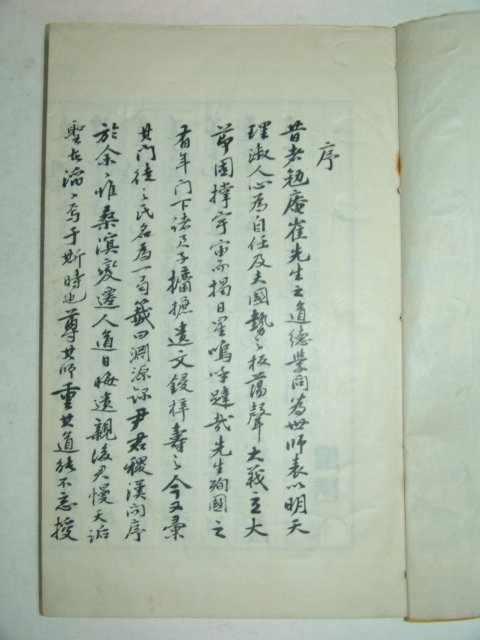 序
昔者勉庵崔先生之道德學問爲世師表以明天
理淑人心爲自任及夫國勢之板蕩聲大義立大
節固撑宇宙而揭日星嗚呼韙哉先生殉國之
有年門下諸君子攟摭遺文鋟梓壽之今又彙
其門徒之氏名爲一局籤曰淵源錄尹君稷漢問序
於余余惟桑溟變遷人道日晦遺親後君慢天詬
聖者滔滔焉于斯時也尊其師重其道能不忘授